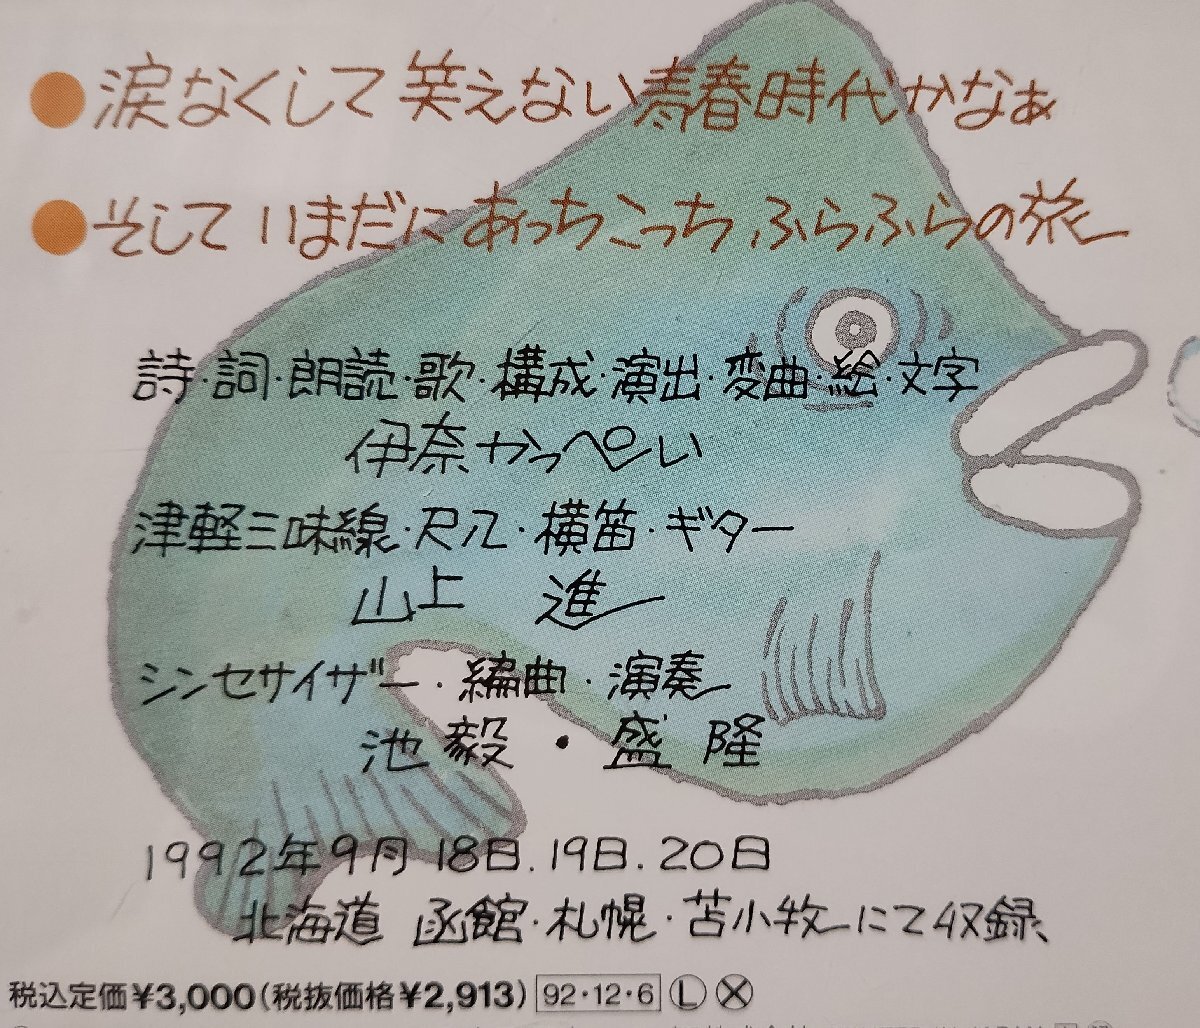 ●涙なくして笑えない青春時代かなぁ
●そしていまだにあっちこっちふらふらの旅
詩・詞・朗読・歌・構成・演出・変曲・絵・文字
伊奈かっぺい
津軽三味線・尺八・横笛・ギター
山上 進
シンセサイザー・編曲・演奏
池毅・盛隆
1992年9月18日.19日.20日
北海道 函館・札幌・苫小牧にて収録、
税込定価¥3,000(税抜価格¥2,913) 92・12・6 Ⓛ Ⓧ